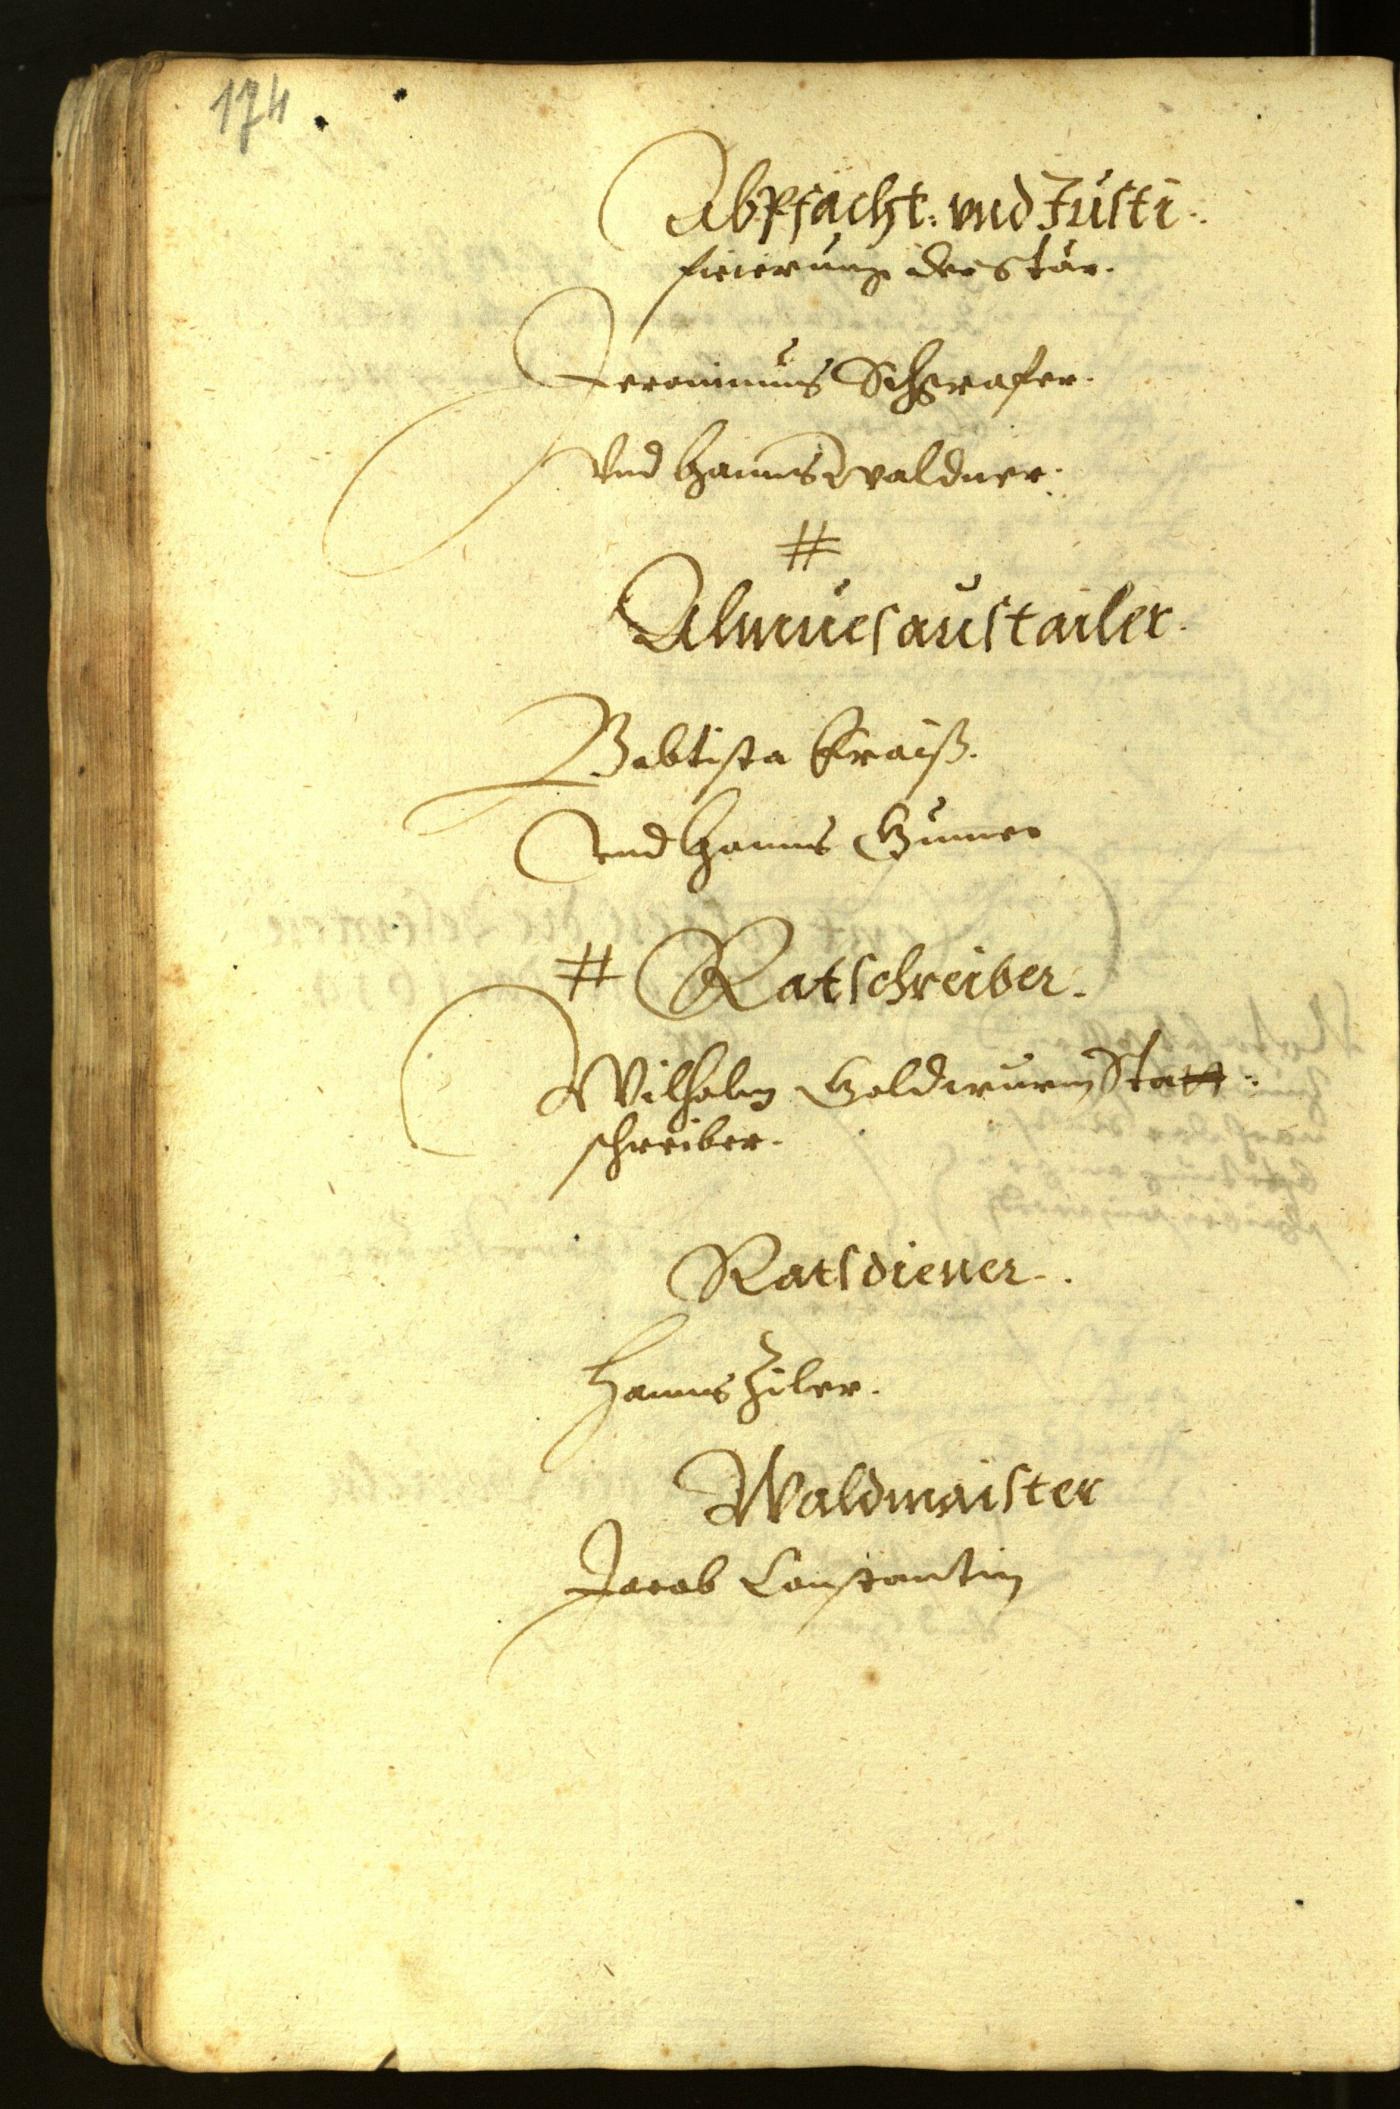 174
Abpfächt: vnd Justi:
ficierung der Stär.
Jeronimus Schgrafer.
Vnd Hanns Waldner.
#
Almuesaustailer.
Babtista Kraiß.
vnd Hanns Gumer
# Ratschreiber.
Wilhalm Goldwurm Statt:
schreiber.
Ratsdiener.
Hanns Ziler.
Waldmaister
Jacob Constantin